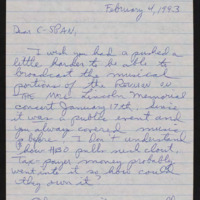 February 4, 1993
Dear C-SPAN,
I wish you had a pushed a
little harder to be able to
broadcast the musical
portions of the
the Lincoln Memorial
concert January 17th. Since
it was a public event and
you always covered music
before, I don't understand
how HBO pulls such clout.
Tax payer money probably
went into it so how could
they own it?